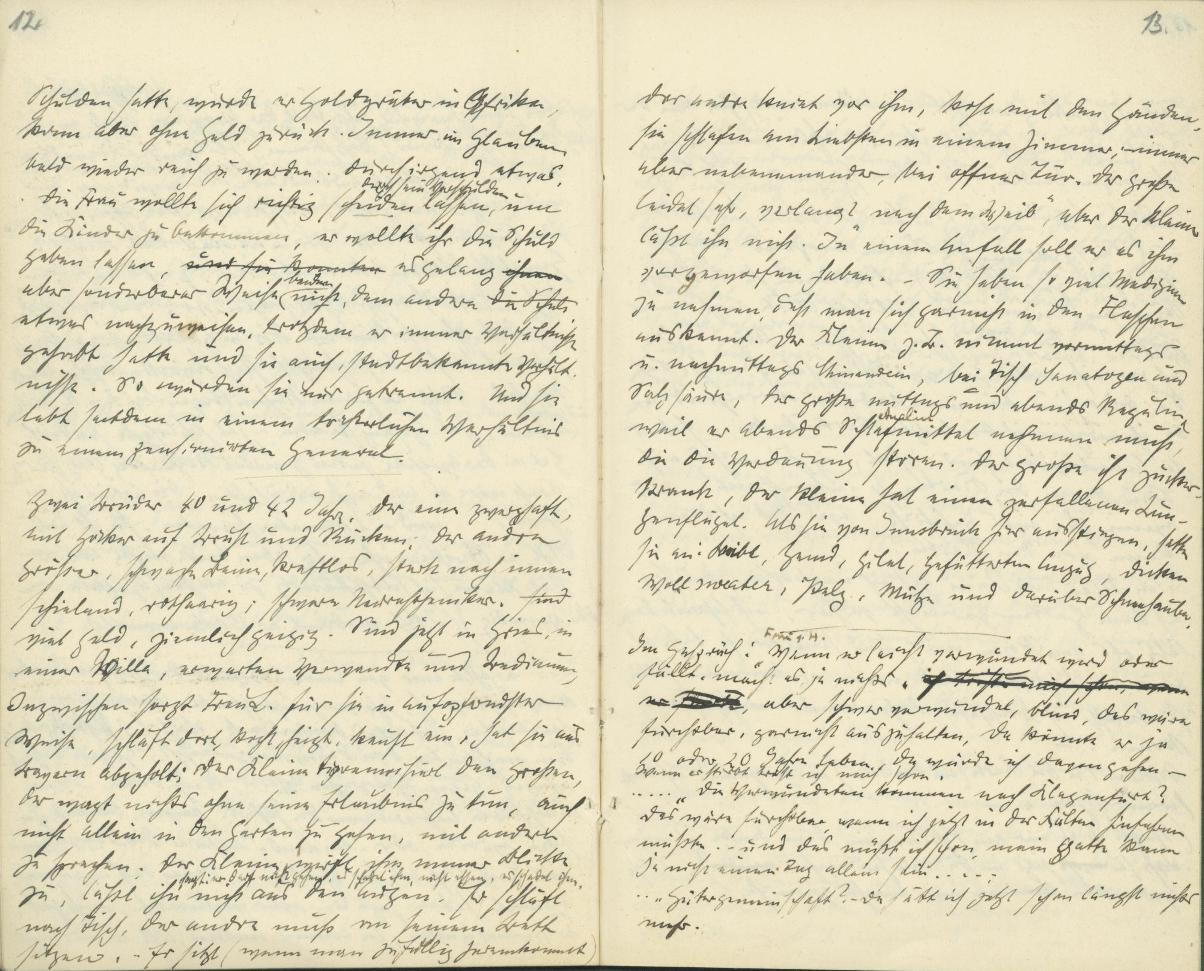 12.
Schulden hatte, wurde er Goldgräber in Afrika,
kam aber ohne Geld zurück. Immer im Glauben
bald wieder reich zu werden. Durch irgend etwas.
durch sein Verschulden
Die Frau wollte sich richtig scheiden lassen, um
die Kinder zu bekommen, er wollte ihr die Schuld
geben lassen, und sie konnten es gelang ihnen
beiden
aber sonderbarer Weise nicht, dem andern die Schuld
etwas nachzuweisen, trotzdem er immer Verhältnisse
gehabt hatte und sie auch, stadtbekannte Verhält-
nisse. So wurden sie nur getrennt. Und sie
lebt seitdem in einem Verhältnis
zu einem pensionirten General.
Zwei Brüder 40 und 42 Jahr. Der eine zwerghaft,
mit Höcker auf Brust und Rücken; der andre
grösser, schwache Beine, kraftlos, stark nach innen
schielend, rothaarig; schwere Neurastheniker. Sind
viel Geld, ziemlich geizig. Sind jetzt in Gries, in
einer Villa, erwarten Verwandte und Bedienung,
Inzwischen sorgt Frau L. für sie in aufopferndster
Weise, schläft dort, kocht, heizt, kauft ein, hat sie aus
Bayern abgeholt. Der Kleine tyrannisiert den großen,
der wagt nichts ohne seine Erlaubnis zu tun, auch
nicht allein in den Garten zu gehen, mit andern
zu sprechen. Der Kleine wirft ihm immer Blicke
zu, läßt ihn nicht aus den Augen. Er schläft
nach Tisch, der andre muß an seinem Bett
sitzen. – Er sitzt (wenn man zufällig hereinkommt)
13.
der andre kniet vor ihm, mit den Händen
sie schlafen am Liebsten in einem Zimmer, immer
aber nebeneinander, bei offner Tür. Der große
leidet sehr, verlangt nach dem "Weib", aber der kleine
läßt ihn nicht. In einem Anfall soll er es ihm
vorgeworfen haben. – Sie haben so viel Medizin
zu nehmen, daß man sich garnicht in den Flaschen
auskennt. Der Kleine z.B. nimmt vormittags
u. nachmittags, bei Tisch Sanatogen und
Salzsäure, der große mittags und abends Regulin,
weil er abends Schlafmittel nehmen muß,
die die Verdauung stören. Der große ist zucker-
krank, der kleine hat einen zerfallenen Lun-
genflügel. Als sie von Innsbruck hier ausstiegen, hatten
sie an: Leibl, Hemd, Gilet, gefütterten Anzug, dicken
Wollsweater, Pelz, Mütze und darüber Schneehauben.
Frau v. H.
Im Gespräch: "Wenn er leicht verwundet wird oder
fällt, macht es ja nichts,
aber schwer verwundet, blind, das wäre
furchtbar, garnicht auszuhalten, da könnte er ja
50 oder 20 Jahre leben. Da würde ich davongehen –
wenn er stirbt tröst ich mich schon.
..... "Die Verwundeten kommen nach Klagenfurt?
das wäre furchtbar wenn ich jetzt in der Kälten hinfahren
müßte. – und das müßt ich schon, mein Gatte kann
ja nicht einen Tag allein sein......
.. "Gütergemeinschaft? – Da hätt ich jetzt schon längst nichts
mehr.